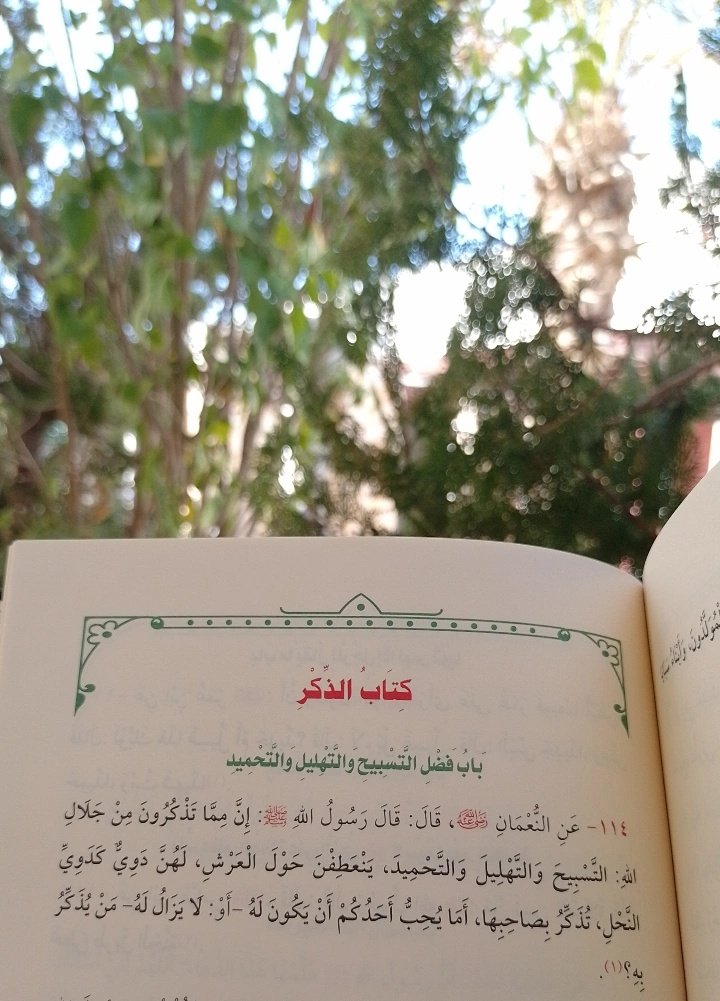 كِتَابُ الذِّكْرِ
بَابُ فَضْلِ التَّسْبِيحِ وَالتَّهْلِيلِ وَالتَّحْمِيدِ
١١٤- عَنِ النُّعْمَانِ رضي الله عنه، قَالَ: قَالَ رَسُولُ اللهِ ﷺ: إِنَّ مِمَّا تَذْكُرُونَ مِنْ جَلَالِ
اللهِ: التَّسْبِيحَ وَالتَّهْلِيلَ وَالتَّحْمِيدَ، يَنْعَطِفْنَ حَوْلَ الْعَرْشِ، لَهُنَّ دَوِيٌّ كَدَوِيِّ
النَّحْلِ، تُذَكِّرُ بِصَاحِبِهَا، أَمَا يُحِبُّ أَحَدُكُمْ أَنْ يَكُونَ لَهُ -أَوْ: لَا يَزَالُ لَهُ- مَنْ يُذَكِّرُ
بِهِ؟(١).